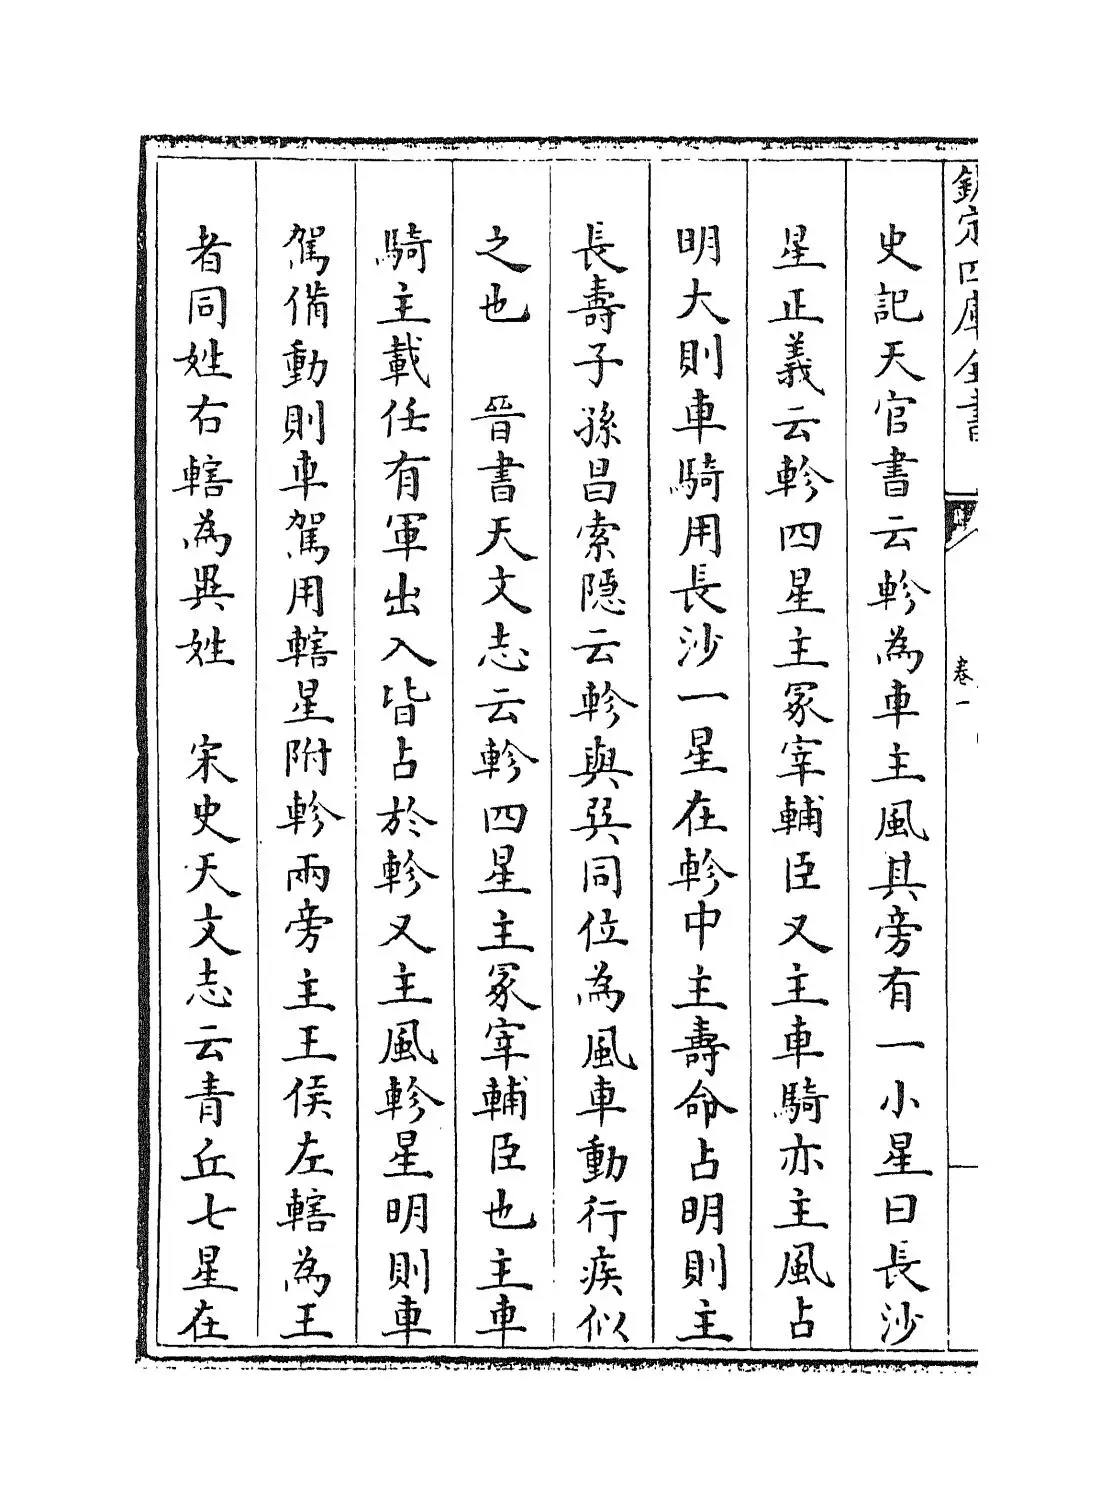 欽定四庫全書
卷一
史記天官書云軫為車主風其旁有一小星曰長沙
星正義云軫四星主冢宰輔臣又主車騎亦主風占
明大則車騎用長沙一星在軫中主壽命占明則主
長壽子孫昌索隱云軫與巽同位為風車動行疾似
之也　晉書天文志云軫四星主冢宰輔臣也主車
騎主載任有軍出入皆占於軫又主風軫星明則車
駕備動則車駕用轄星附軫兩旁主王侯左轄為王
者同姓右轄為異姓　宋史天文志云青丘七星在